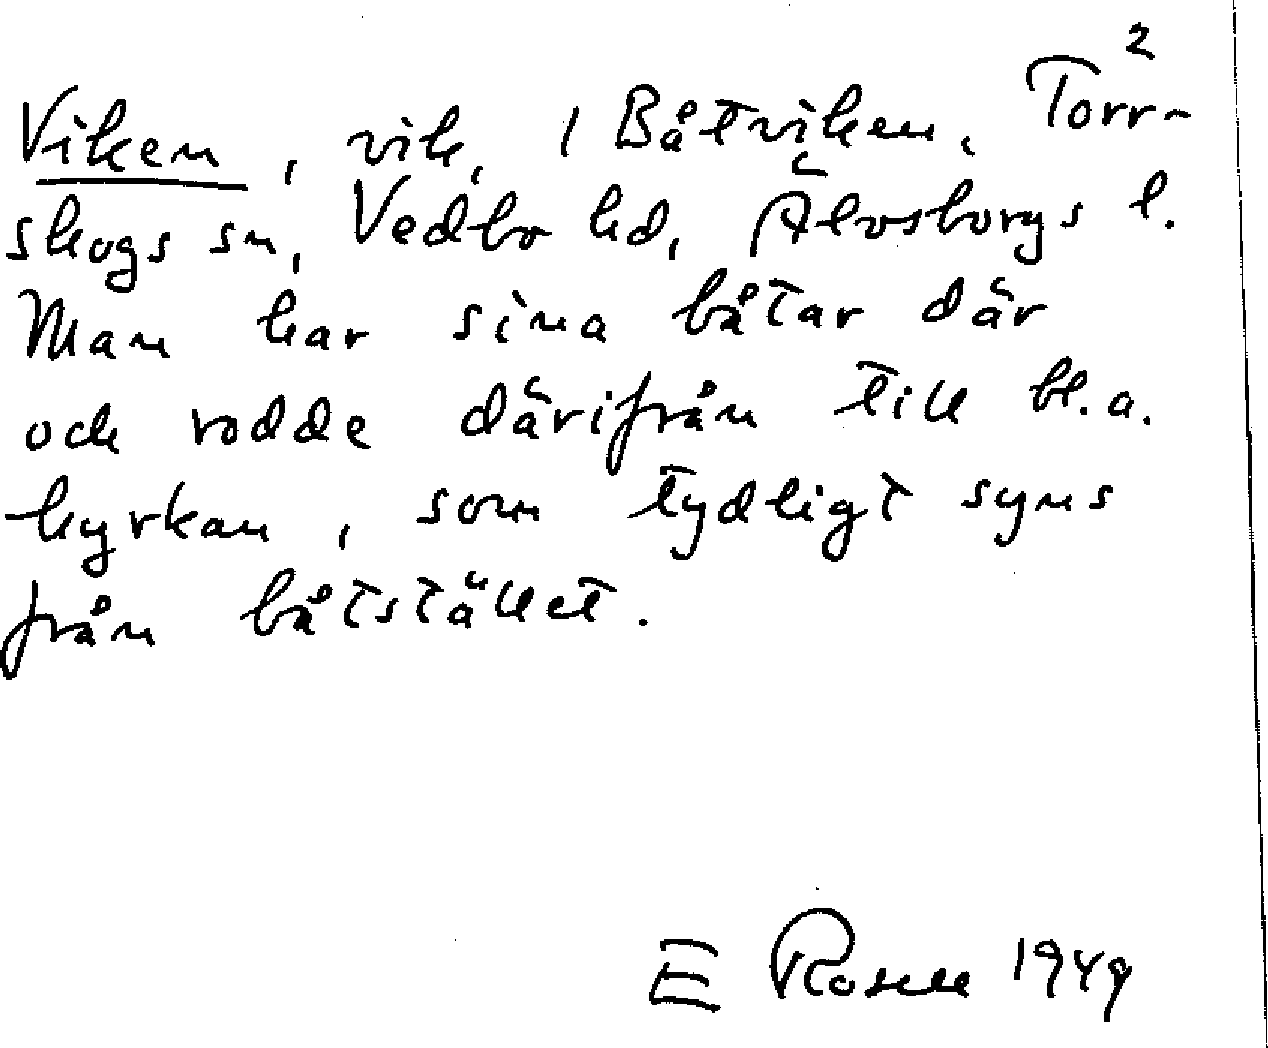 2
Viken, vik, 1 Båtviken, Torr-
skogs sn, Vedbo hd, Älvsborgs l.
Man har sina båtar där
och rodde därifrån till bl.a.
kyrkan, som tydligt syns
från båtstället.
E Rosell 1949